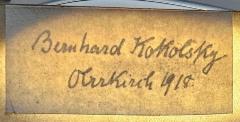 Bernhard Kokolsky
Obrrkirch 1918